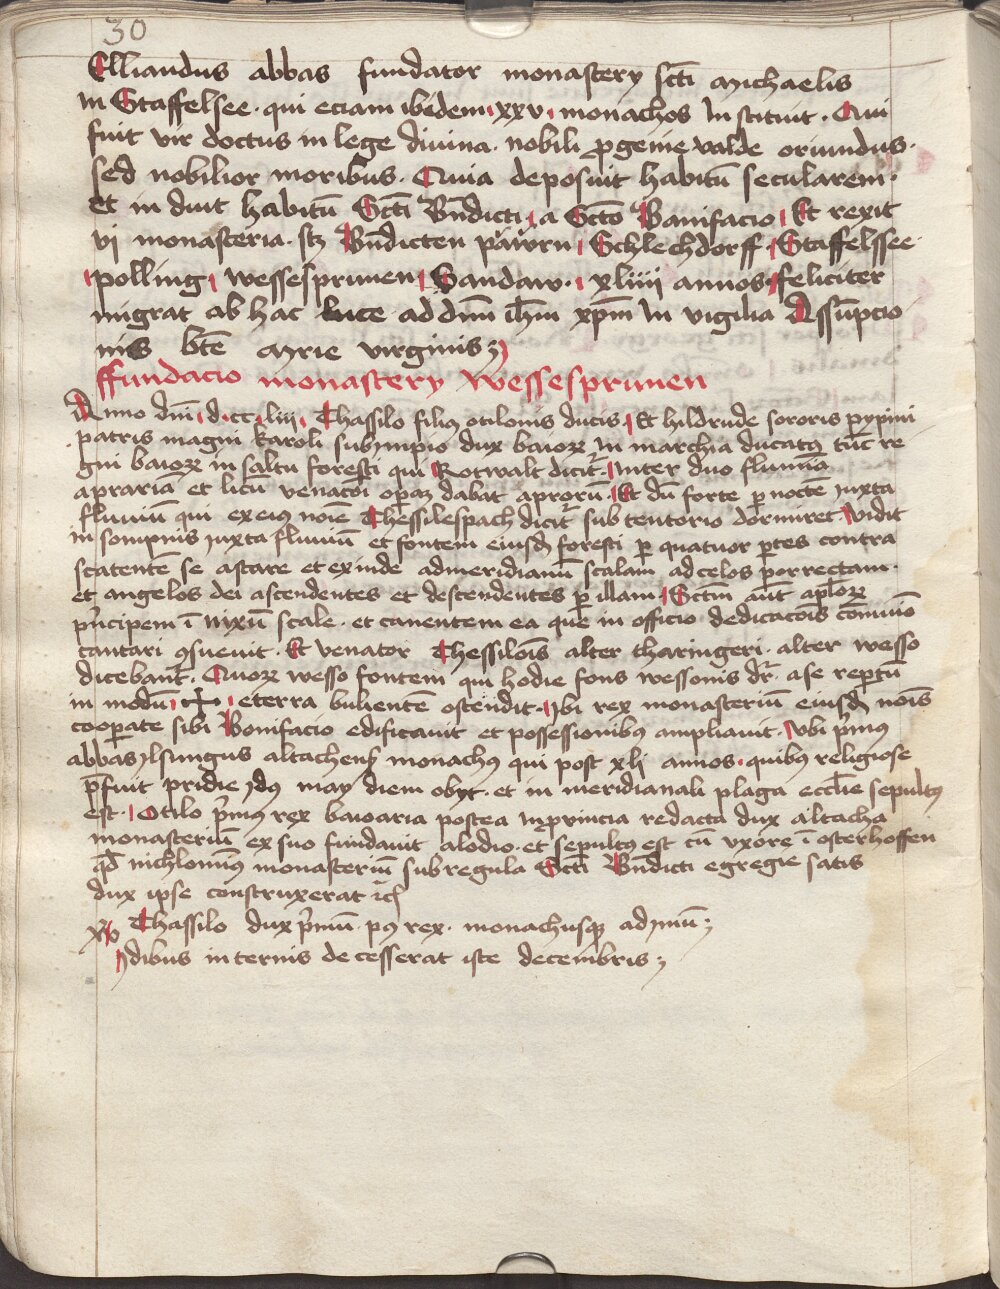 30
Elliandus abbas fundator monastery scti Michaelis
in Staffelsee · qui eciam ibidem · xxv · monachos In stituit · Qui
fuit vir doctus in lege diuina · nobili progenie valde oriundus ·
sed nobilior moribus · Quia deposuit habitū secularem ·
et in duit habitū Scti Bn̄dicti · a Scto Bonifacio · Et rexit
vi monasteria · scz Bn̄dicten päwrn · Schlechdorff · Staffelssee
polling · wessesprunen · Sandaw · xliiij annos · feliciter
migrat ab hac luce ad dn̄m ih̄m xp̄m In vigilia Assūpcio
nis bt̄e Mrie virginis
ffundacio monastery Wessesprunen
Anno dn̄i · d · cc · liij · Thassilo filiꝰ otilonis ducis · Et hildrude sororis pypini
patris magni karoli sub impio dux baioꝝ in marchia ducatꝰ tūc re
gni baioꝝ in saltu foresti qui Rotwalt dicit᷑ · Inter duo flumina
aprariā et licū venacōi oꝑaz dabat aprorū · Et dū forte ꝑ noctē iuxta
fluuiū qui ex eiꝰ noīe Thessilespach dicit᷑ sub tentorio dormiret · Vidit
in sompnis iuxta fluuiū et fontem eiusdē foresti ꝑ quatuor ꝑtes contra
scatentē se astare et exinde ad meridianū scalam ad celos porrectam ·
et angelos dei ascendentes et descendentes ꝑ illam · Sctm̄ aūt apl̄oꝝ
pͥncipem ī nixū scale · et canentem ea que in officio dedicacōis cōmuīo
cantari ꝯsueuit · Et venator Thessilōis alter tharingeri · alter wesso
dicebant᷑ · Quoꝝ wesso fontem qui hodie fons wessonis dr̄ · a se reꝑtū
in modū · ✝ · e terra bulientē ostendit · Ibi rex monasteriū eiusdē nōis
cooꝑate sibi Bonifacio edificauit et possessionibꝰ ampliauit · Vbi pͥmꝰ
abbas ylsungus altachen̄ monachꝰ qui post xlj annos · quibꝰ religiose
p̄fuit pridie ydꝰ may diem obyt · et in meridianali plaga eccl̄ie sepultꝰ
est · Otilo pͥmꝰ rex baioaria postea in prouincia redacta dux altacha
monasteriū ex suo fundauit alodio · et sepultꝰ est cū vxore ī osterhoffen
qd̄ nichlominꝰ monasteriū sub regula Scti Bn̄dicti egregie satis
dux ipse construxerat ꝛc̄
Thassilo dux pͥmū · pꝰ rex · monachusqꝫ ad ymū
Idibus in ternis de cesserat iste decembris